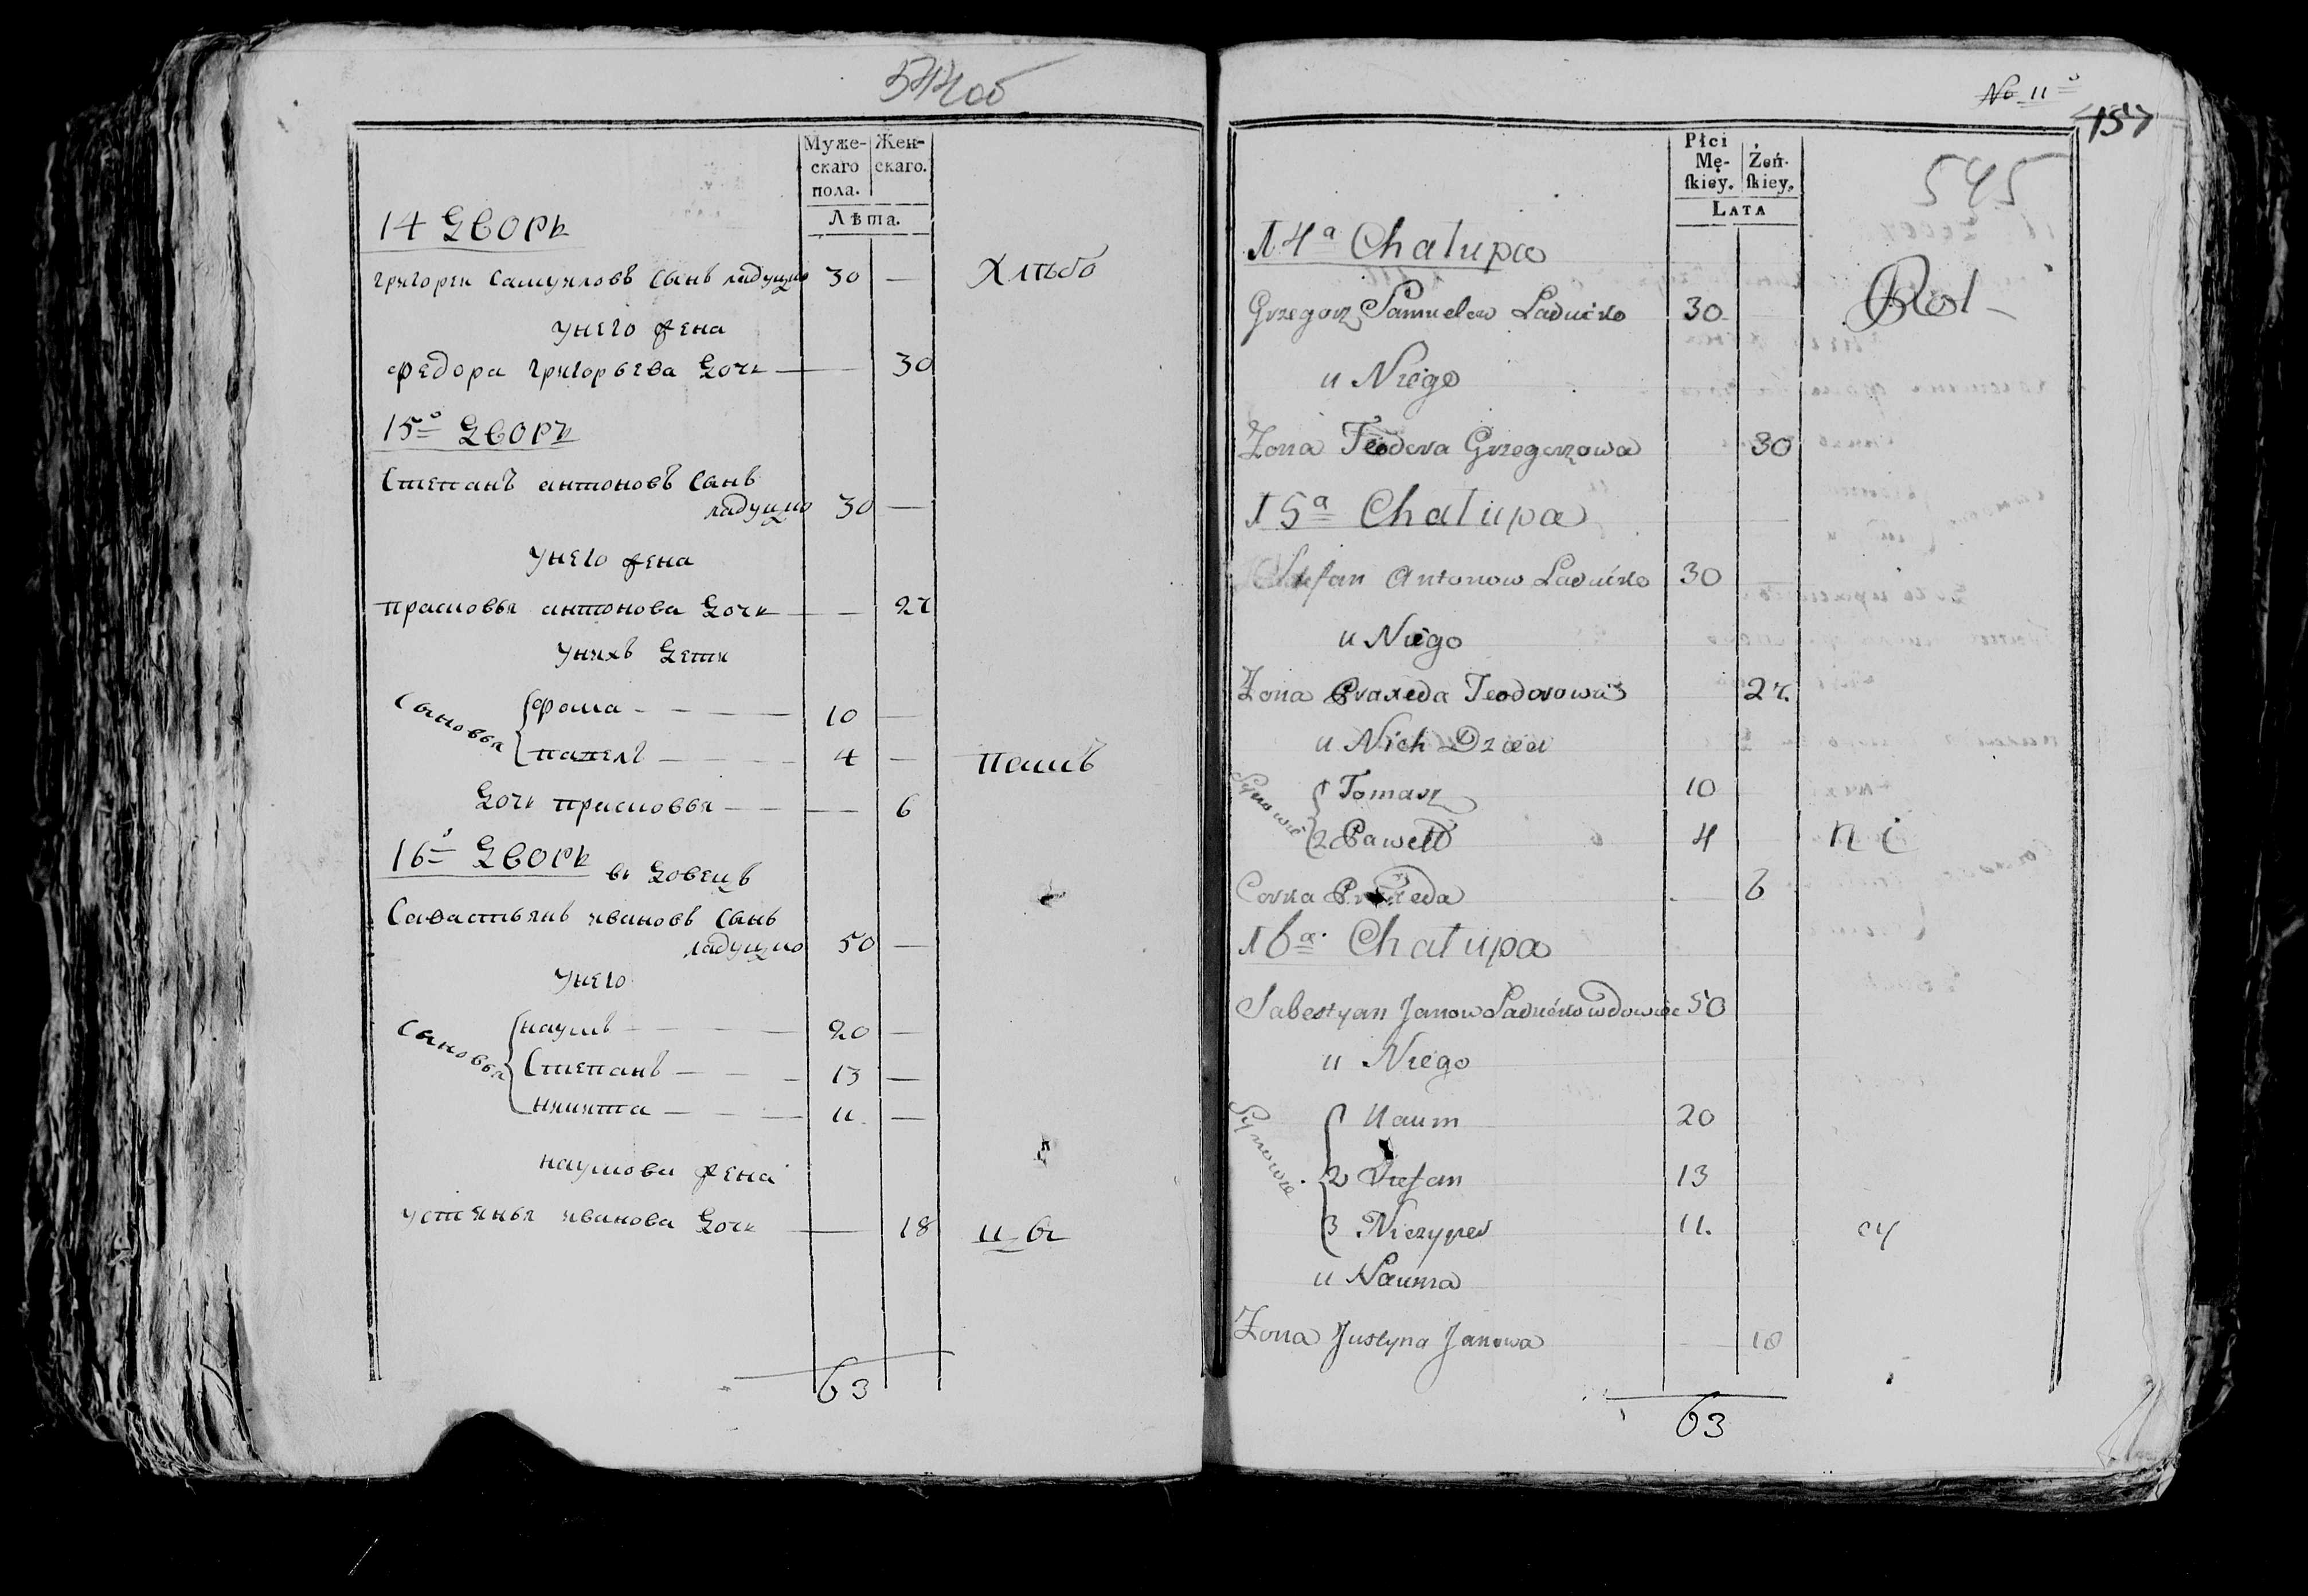 544об
Муже-
скаго
пола.
Жен-
скаго.
Лѣта.
14 Дворъ
Григореи Самуиловъ Сынъ Ладуцко 30 —
Хлѣбо
унего жена
Федора Григорьева Дочь — — 30
15й Дворъ
Степанъ антоновъ Сынъ
Ладуцко 30 —
унего жена
Прасковья антонова Дочь — — 27
унихъ Дети
Сыновья
Фома — — — 10 —
Павелъ — — — 4 —
пашъ
Дочь Прасковья — — — 6
16й Дворъ въ Довецъ
Савастьянъ ивановъ Сынъ
Ладуцко 50 —
унего
Сыновья
наумъ — — — 20 —
Степанъ — — — 13 —
никита — — — 11 —
наумова жена
устинья иванова Дочь — 18
63
No 11
157
545
Płci
Mę-
ſkiey.
Żeń-
ſkiey.
Lata
14a Chałupa
Grzegorz Samuelow Laducko 30
Rol-
u Niego
Żona Teodora Grzegorzowa 30
15a Chałupa
Stefan Antonow Laducko 30
u Niego
Żona Praxeda Teodorowa 27
u Nich Dzieci
Synowie
1 Tomasz 10
2 Paweł 4
ni
Corka Praxeda 6
16a Chałupa
Sabestyan Janow Laducko wdowiec 50
u Niego
Synowie
Naum 20
2 Stefan 13
3 Niczyper 11.
cy
u Nauma
Żona Justyna Janowa 18
63